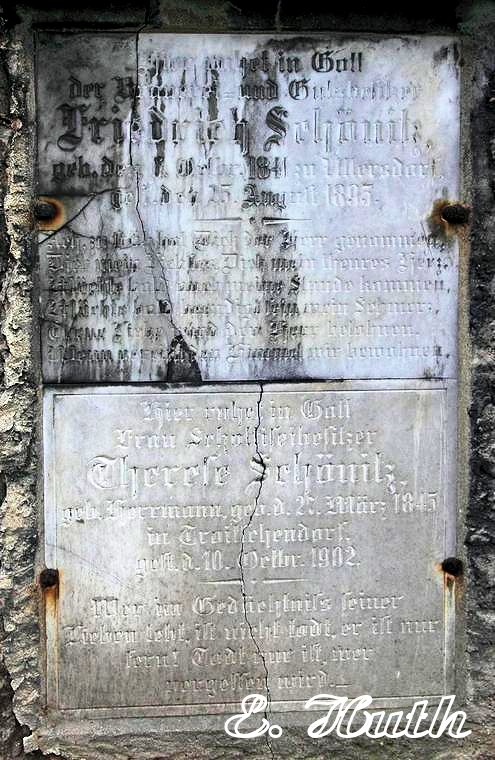 Hier ruhet in Gott
der und Gutsbesitzer
Friedrich Schönitz,
geb. den Octbr. 1841 zu Ullersdorf,
gest. den 25. August 1895.
Ach, zu früh hat Dich der Herr genommen,
Dich mein Dich mein theures Herz,
bald meine Stunde kommen,
mein Schmerz,
Deine Liebe wird der Herr belohnen,
Wenn wir Himmel wir bewohnen.
Hier ruhet in Gott
Frau Scholtiseibesitzer
Therese Schönitz,
geb. Herrmann, geb. d. 27. März 1845
in Troitschendorf,
gest. d. 10. Octbr. 1902.
Wer im Gedächtniss seiner
Lieben lebt, ist nicht todt, er ist nur
fern! Todt nur ist, wer
vergessen wird.
E. Huth